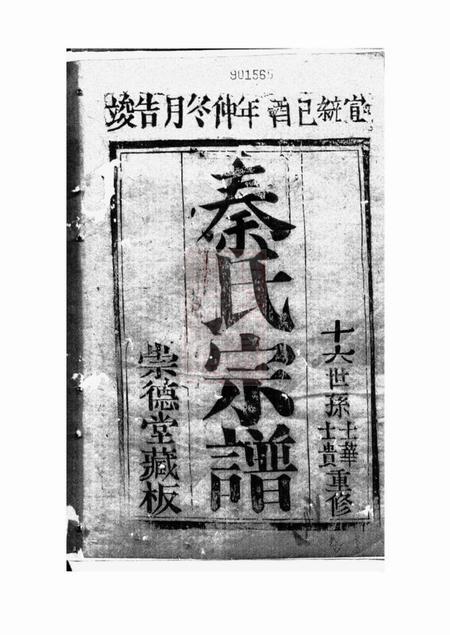 901565
宣統己酉年仲冬月告竣
十六世孫士華士貴重修
秦氏宗譜
崇德堂藏板